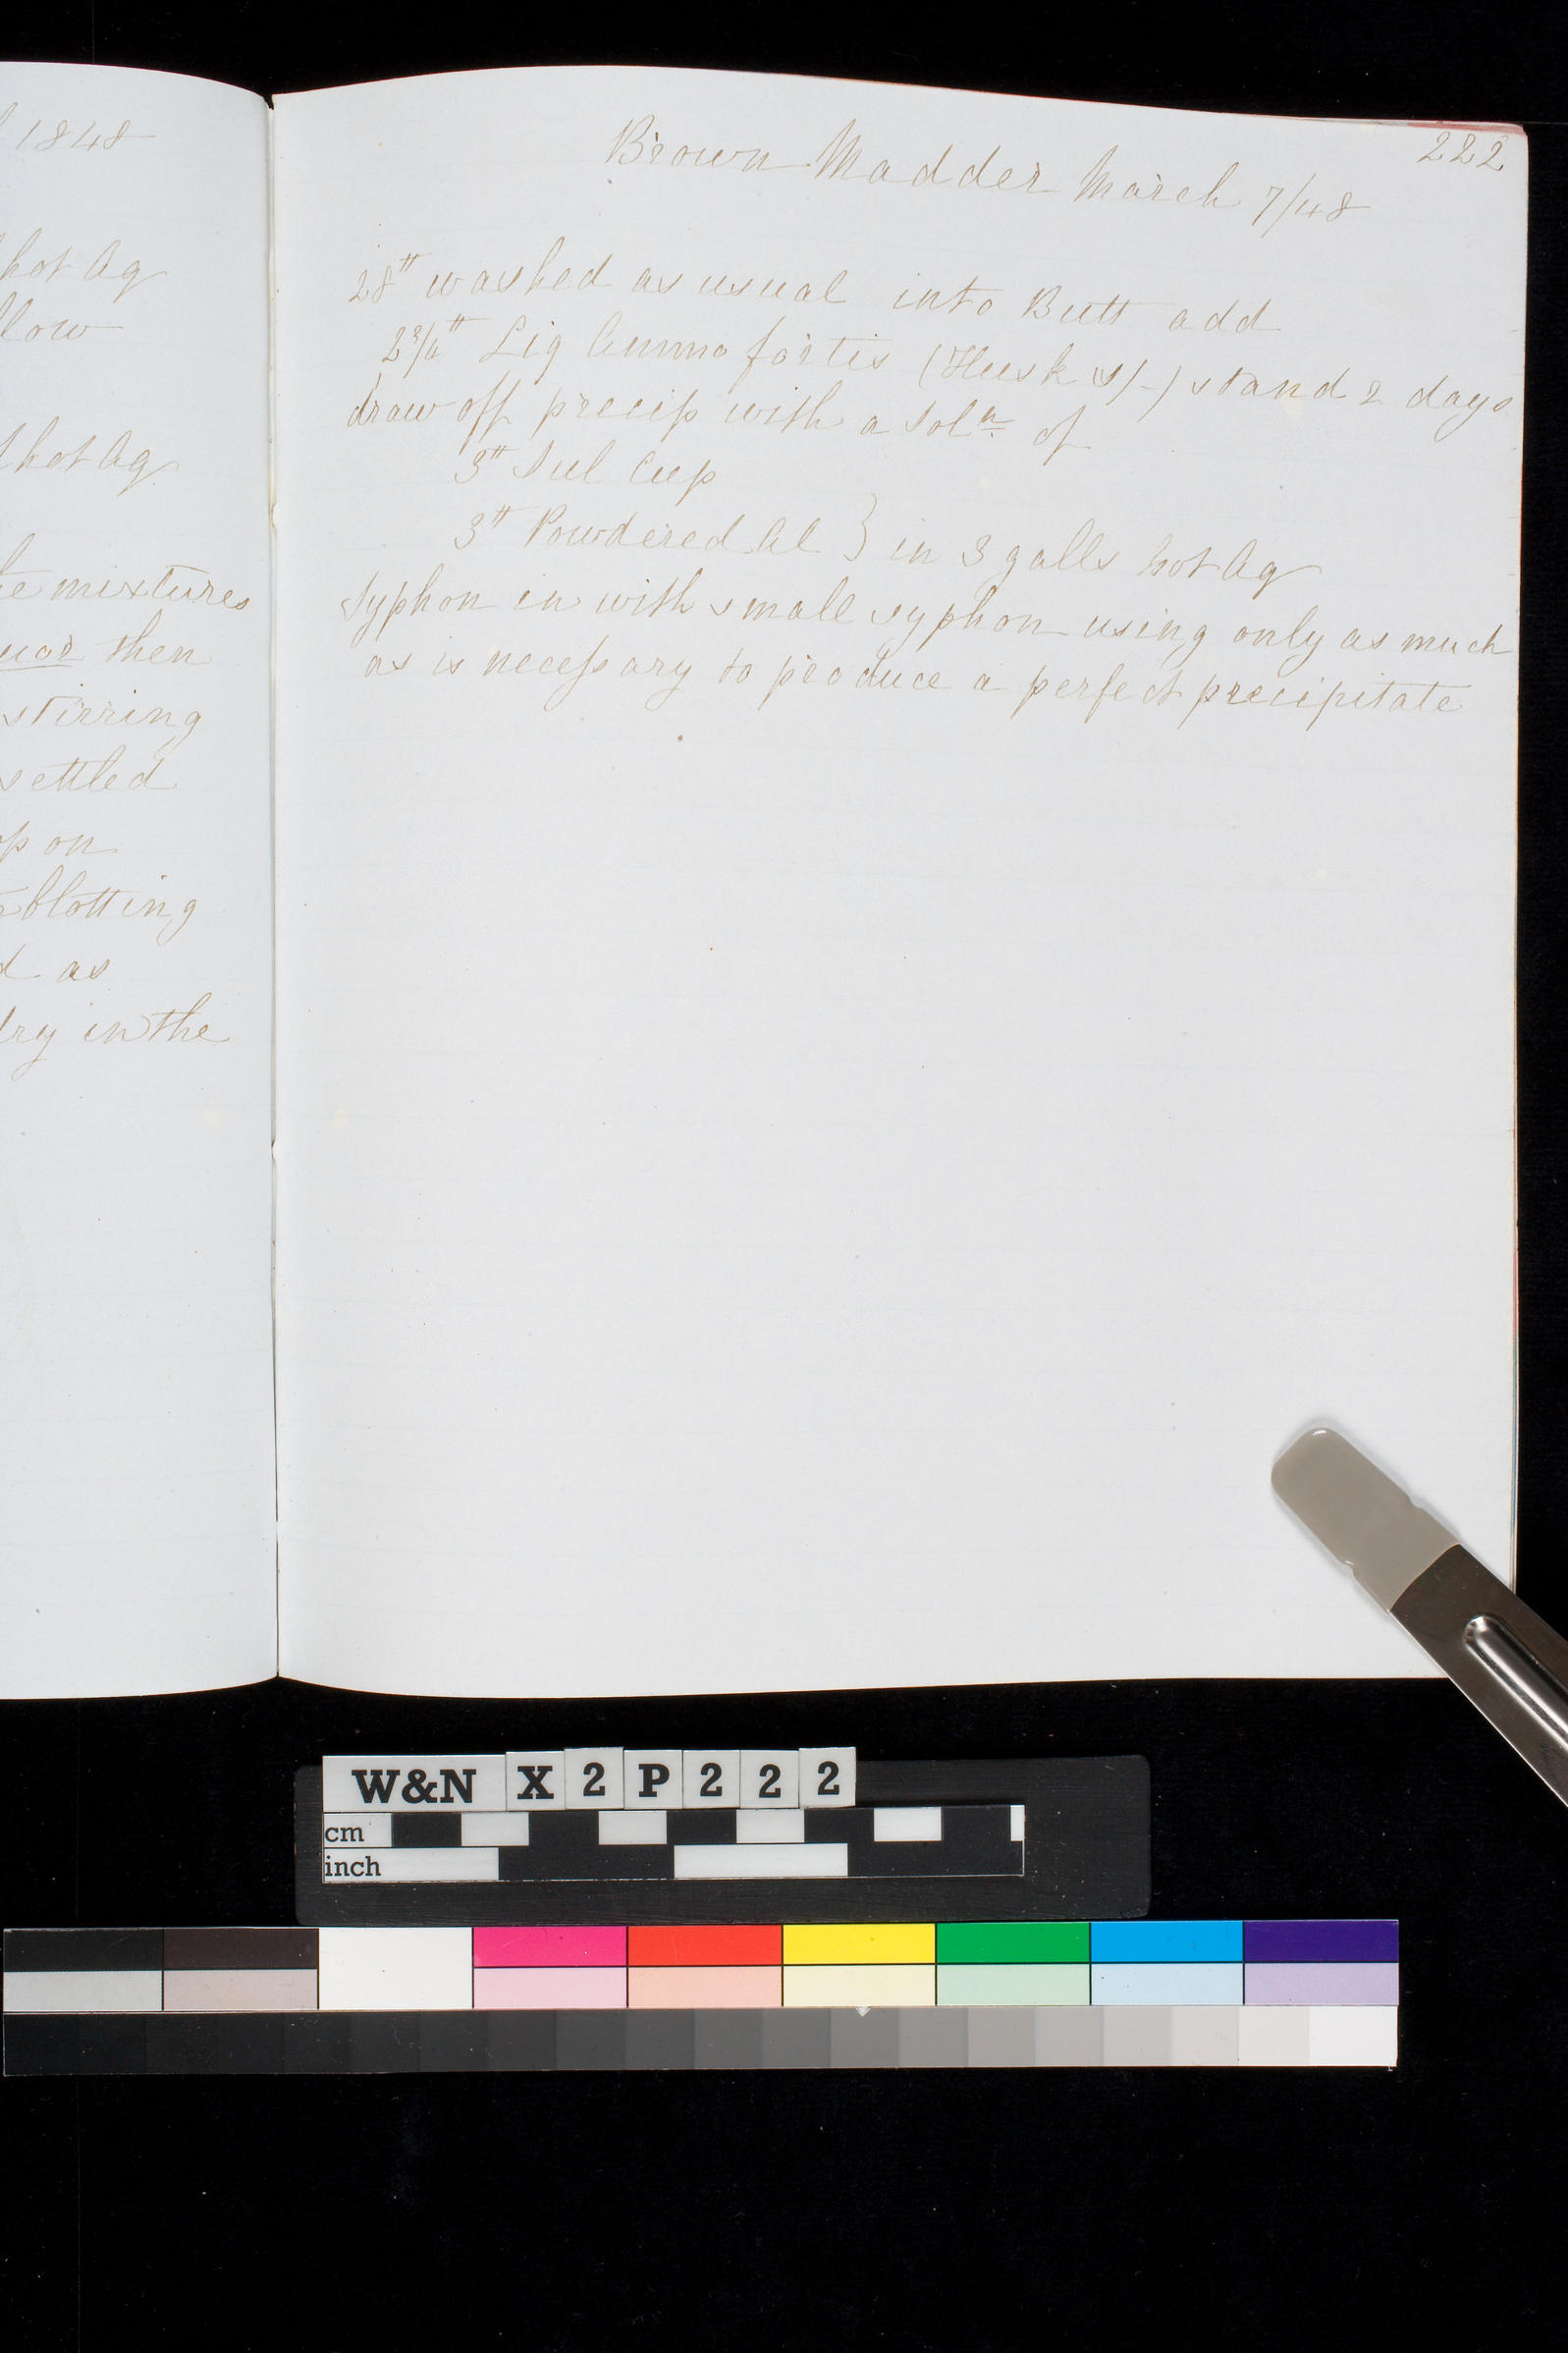 l 1848
hot Aq
llow
hot Aq
te mixtures
uor then
stirring
settled
op on
blotting
d as
dry in the
222
Brown Madder March 7/48
28 ♯ washed as usual into Butt add
2 3/4 ♯ Liq Ammo fortis (Husk s/-) stand 2 days
draw off precip with a Solⁿ of
3 ♯ Sul Cup
3 ♯ Powdered Al } in 3 galls hot Aq
Syphon in with small syphon using only as much
as is necessary to produce a perfect precipitate
W&N X2P222
cm
inch